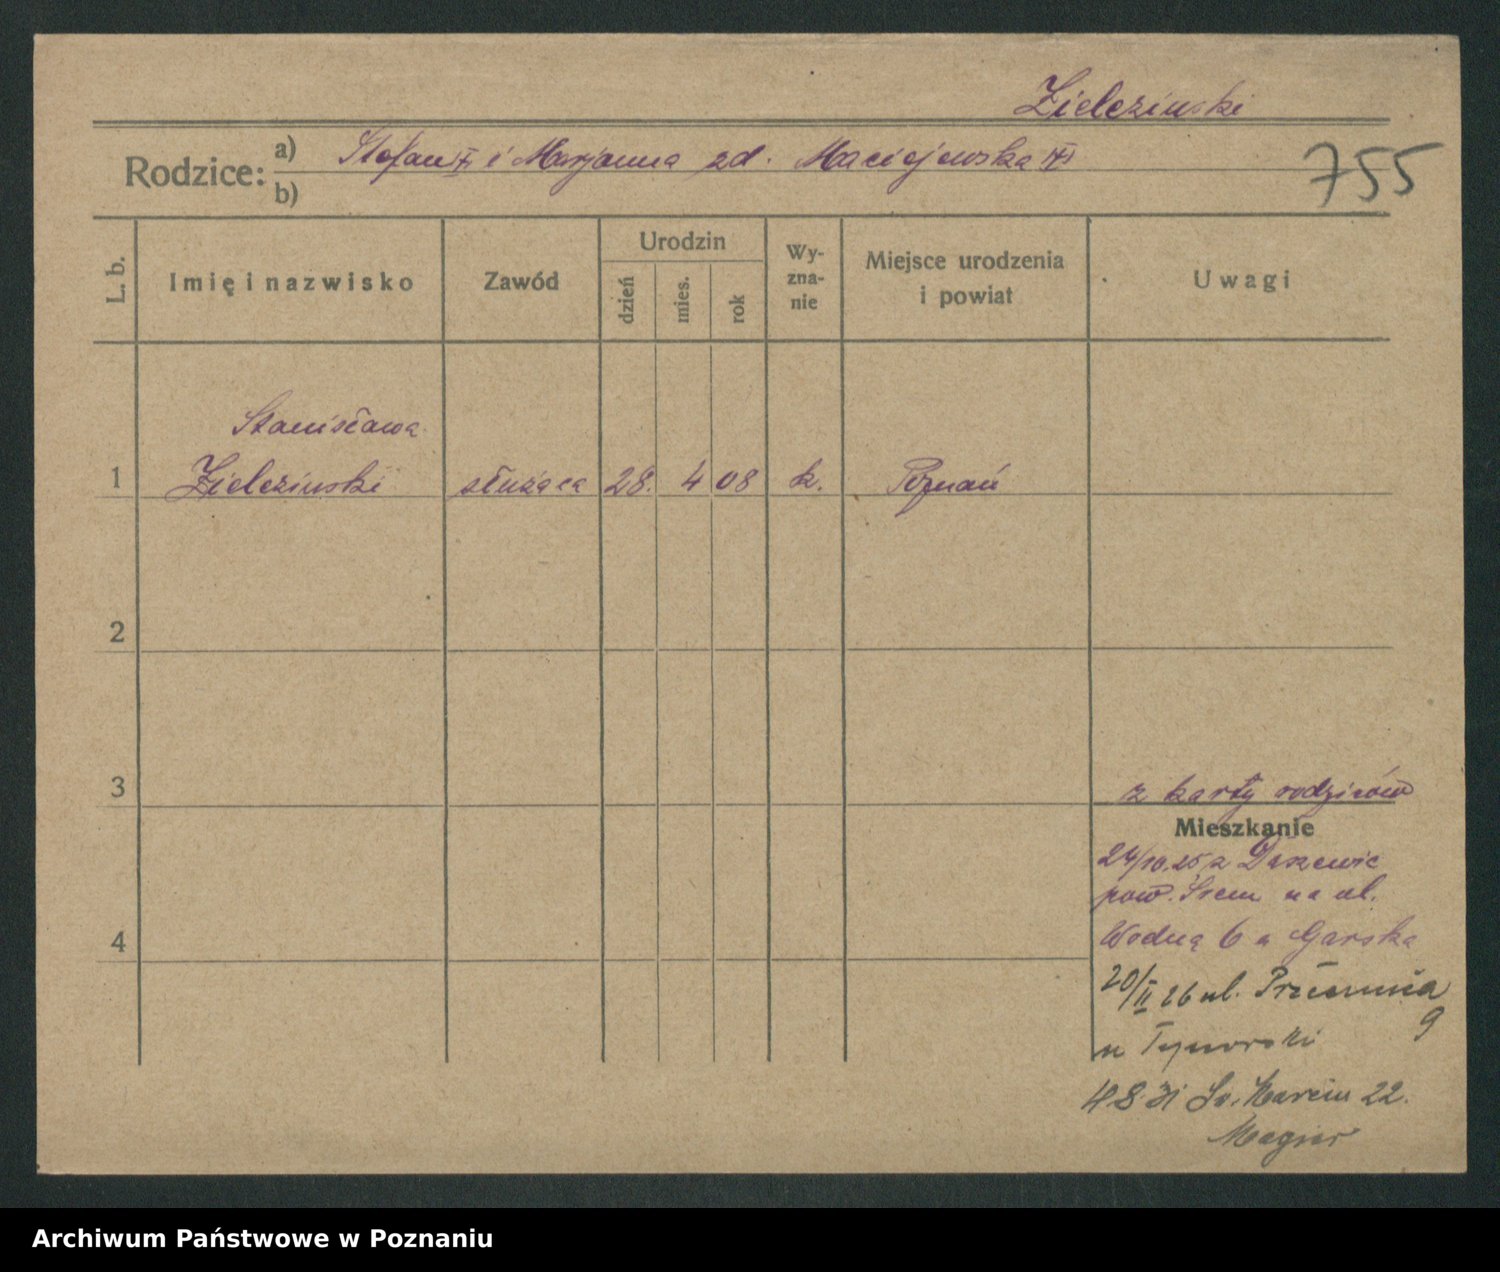 Zielezinski
Rodzice: a) Stefan i Marjanna zd. Maciejewska
b)
755
L. b.
Imię i nazwisko
Zawód
Urodzin
dzień
mies.
rok
Wy-
zna-
nie
Miejsce urodzenia
i powiat
Uwagi
Stanisława
1 Zielezinski służąca 28. 4 08 k. Poznań
2
3
z karty rodziców
Mieszkanie
24/10.25 z Daszewic
pow. Śrem na ul.
Wodną 6 u Garska
4
20/II 26 ul. Przecznica
9
u
4 8 31 Św. Marcin 22.
Magier
Archiwum Państwowe w Poznaniu